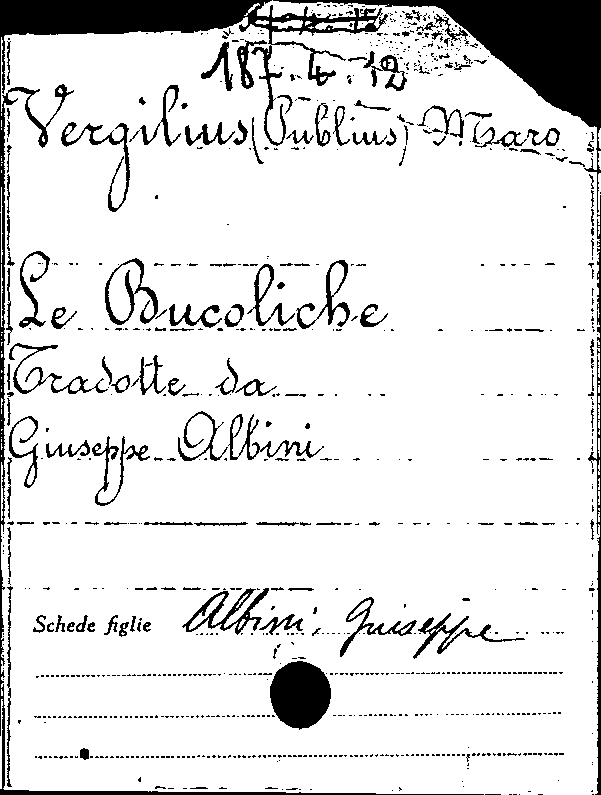 187.4.12
Vergilius (Publius) Maro
Le Bucoliche
Tradotte da
Giuseppe Albini
Schede figlie Albini, Giuseppe